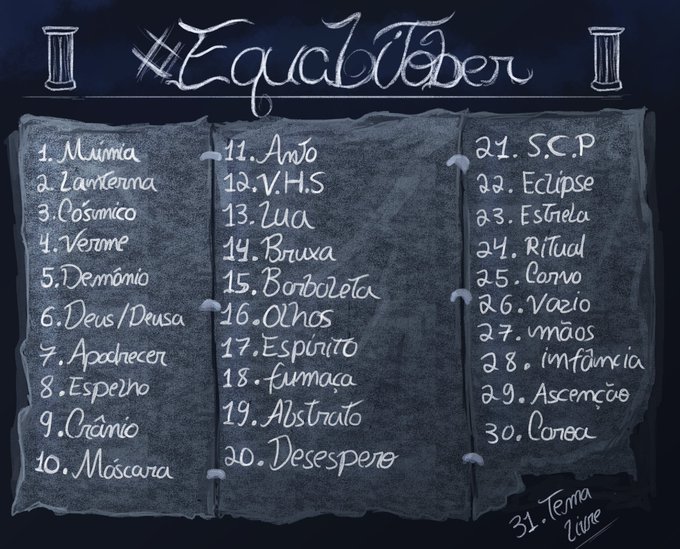 #EqualiTober
1. Múmia
2. Lanterna
3. Cósmico
4. Verme
5. Demônio
6. Deus/Deusa
7. Apodrecer
8. Espelho
9. Crânio
10. Máscara
11. Anjo
12. V.H.S
13. Lua
14. Bruxa
15. Borboleta
16. Olhos
17. Espírito
18. fumaça
19. Abstrato
20. Desespero
21. S.C.P
22. Eclipse
23. Estrela
24. Ritual
25. Corvo
26. Vazio
27. mãos
28. infância
29. Ascenção
30. Coroa
31. Tema
livre